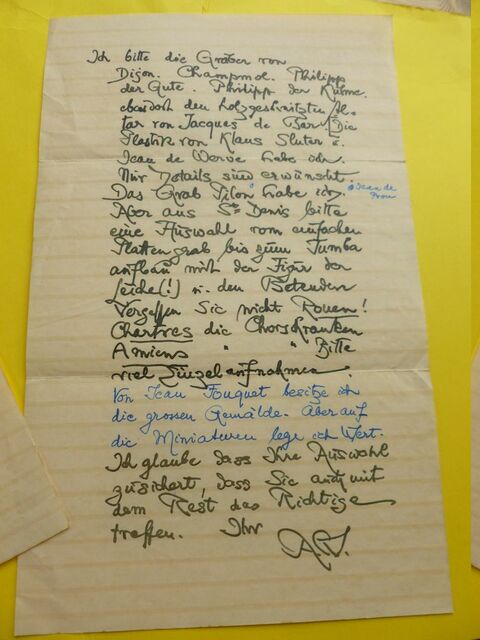 Ich bitte die Gräber von
Dijon. Champmol. Philipp
der Gute. Philipp der Kühne.
ebendort den holzgeschnitzten Al-
tar von Jacques de Bar. Die
Plastik von Klaus Sluter u.
Jean de Werve habe ich.
Nur Details sind erwünscht.
Das Grab Pilon habe ich
Jean de
Aber aus St Denis bitte
eine Auswahl vom einfachen
Plattengrab bis zum Tumba
aufbau mit der Figur der
Leiche(!) u. den Betenden
Vergessen Sie nicht Rouen!
Chartres die Chorschranken
Amiens " " Bitte
viel Einzelaufnahmen.
Von Jean Fouquet besitze ich
die grossen Gemälde. Aber auf
die Miniaturen lege ich Wert.
Ich glaube dass Ihre Auswahl
zusichert, dass Sie auch mit
dem Rest das Richtige
treffen. Ihr